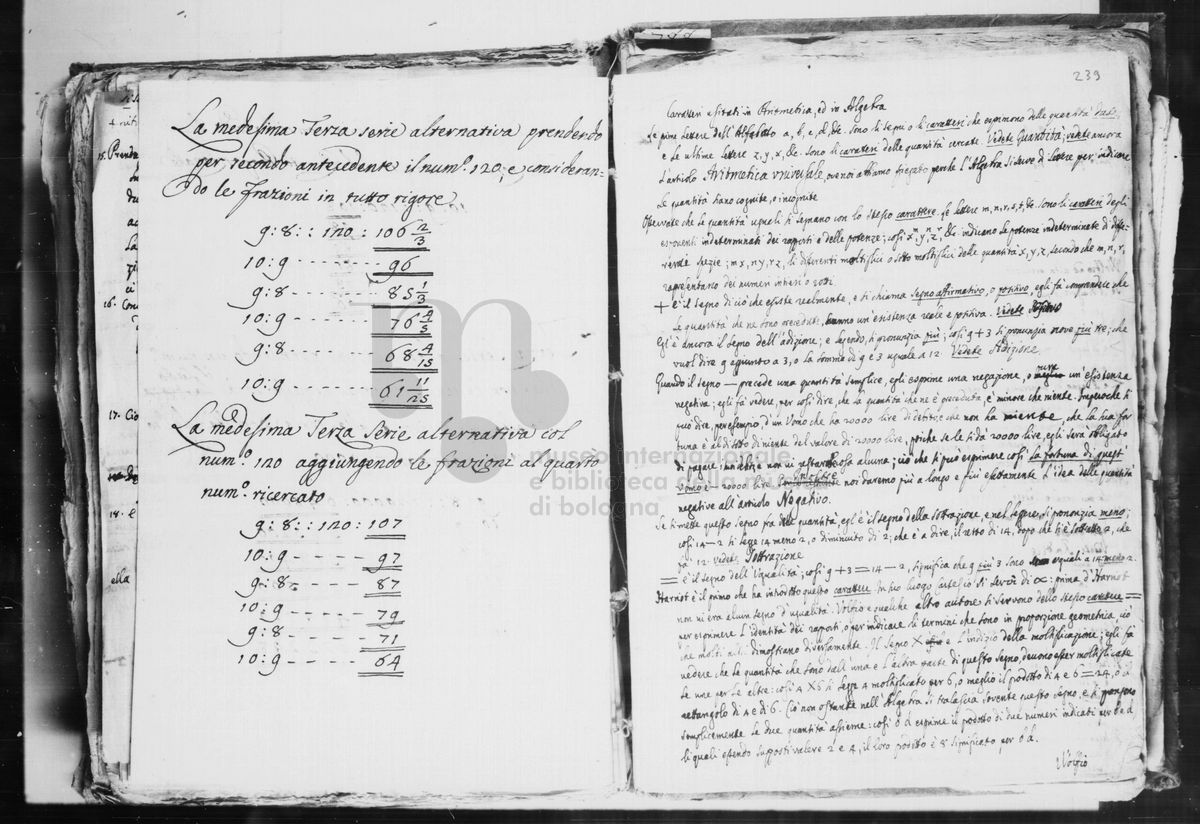 La medesima Terza serie alternativa prendendo
per secondo antecedente il num.º 120, e consideran-
do le frazioni in tutto rigore
9:8::120:106 2/3
10:9 - - - - - - - - 96
9:8 - - - - - - - - 85 1/3
10:9 - - - - - - - - 76 4/5
9:8 - - - - - - - - 68 4/15
10:9 - - - - - - - - 61 11/25
La medesima Terza Serie alternativa col
num.º 120 aggiungendo le frazioni al quarto
num.º ricercato
9:8::120:107
10:9 - - - - - 97
9:8 - - - - - 87
10:9 - - - - - 79
9:8 - - - - - 71
10:9 - - - - - 64
15. Prend
16. Con
17. Cio
18. E
ella
239
Caratteri usitati in Aritmetica, ed in Algebra
Le prime Lettere dell'Alfabetto a, b, c, d, &c. sono li segni o li caratteri che esprimono delle quantità date;
e le ultime Lettere z, y, x, &c. sono li caratteri delle quantità cercate. Vedete Quantità; vedete ancora
l'articolo Aritmetica universale, ove noi abbiamo spiegato perche l'Algebra si serve di Lettere per indicare
Le quantità hano cognite, o incognite
Osservate che le quantità uguali si segnano con lo stesso carattere. Le lettere m, n, r, s, t, &c. sono li caratteri degli
esponenti indeterminati dei rapporti e delle potenze; così x^m, y^n, z^r, &c. indicano le potenze indeterminate di diffe-
rente spezie; mx, ny, rz, li differenti moltiplici o sotto moltiplici delle quantità x, y, z, secondo che m, n, r,
rappresentano dei numeri intieri o rotti.
+ è il segno di ciò che esiste realmente, e si chiama segno affirmativo, o positivo, egli fà comprendere che
le quantità che ne sono precedute, hanno un'esistenza reale e positiva. Vedete Positivo
Egl'è ancora il segno dell'addizione; e legendo, si pronunzia più; così 9+3 si pronunzia nove più tre; che
vuol dire 9 agiunto a 3, o la somma di 9 e 3 uguale a 12 Vedete Adizione
Quando il segno — precede una quantità semplice, egli esprime una negazione, o un'esistenza
negativa; egli fà vedere, per così dire, che la quantità che ne è preceduta, è minore che niente. Imperoche si
può dire, per esempio, d'un Uomo che ha 20000 lire di debiti e che non ha niente, che la sua for
tuna è al disotto di niente del valore di 20000 lire, poiche se le si dà 20000 lire, egli sarà obligato
di pagare suoi debiti e non vi restarà cosa alcuna; ciò che si può esprimere così La fortuna di quest
Uomo è — 20000 lire noi daremo più a longo e più esattamente l'idea delle quantità
negative all'articolo Negativo.
Se si mette questo segno fra delle quantità, egl'è il segno della sottrazione, e nel leggere, si pronunzia meno;
così 14—2 si legge 14 meno 2, o diminuito di 2; che è a dire, il resto di 14, dopo che si è sottratto 2, che
fà 12 vedete Sottrazione
= è il segno dell'Ugualità; così 9+3=14—2, significa che 9 più 3 sono eguali a 14 meno 2.
Harriot è il primo che ha introdotto questo carattere. In suo luogo Cartesio si serve di ∝: prima d'Harriot
non vi era alcun segno d'ugualità. Volfio e qualche altro autore si servono dello stesso carattere =
per esprimere l'identità dei rapporti, o per indicare li termini che sono in proporzione geometrica, ciò
che molti altri dimostrano diversamente. Il segno × è l'indizio della moltiplicazione; egli fà
vedere che le quantità che sono dall'una e l'altra parte di questo segno, devono esser moltiplicate
le une per le altre: così 4×6 si legge 4 moltiplicato per 6, o meglio il prodotto di 4 e 6 = 24, o il
rettangolo di 4 e di 6. Ciò non ostante nell'Algebra si tralascia sovente questo segno, e si pongono
semplicemente le due quantità assieme: così b d esprime il prodotto di due numeri indicati per b e d
li quali essendo supposti valere 2 e 4, il loro prodotto è 8 significato per b d.
Volfio
museo internazionale
e biblioteca della musica
di bologna